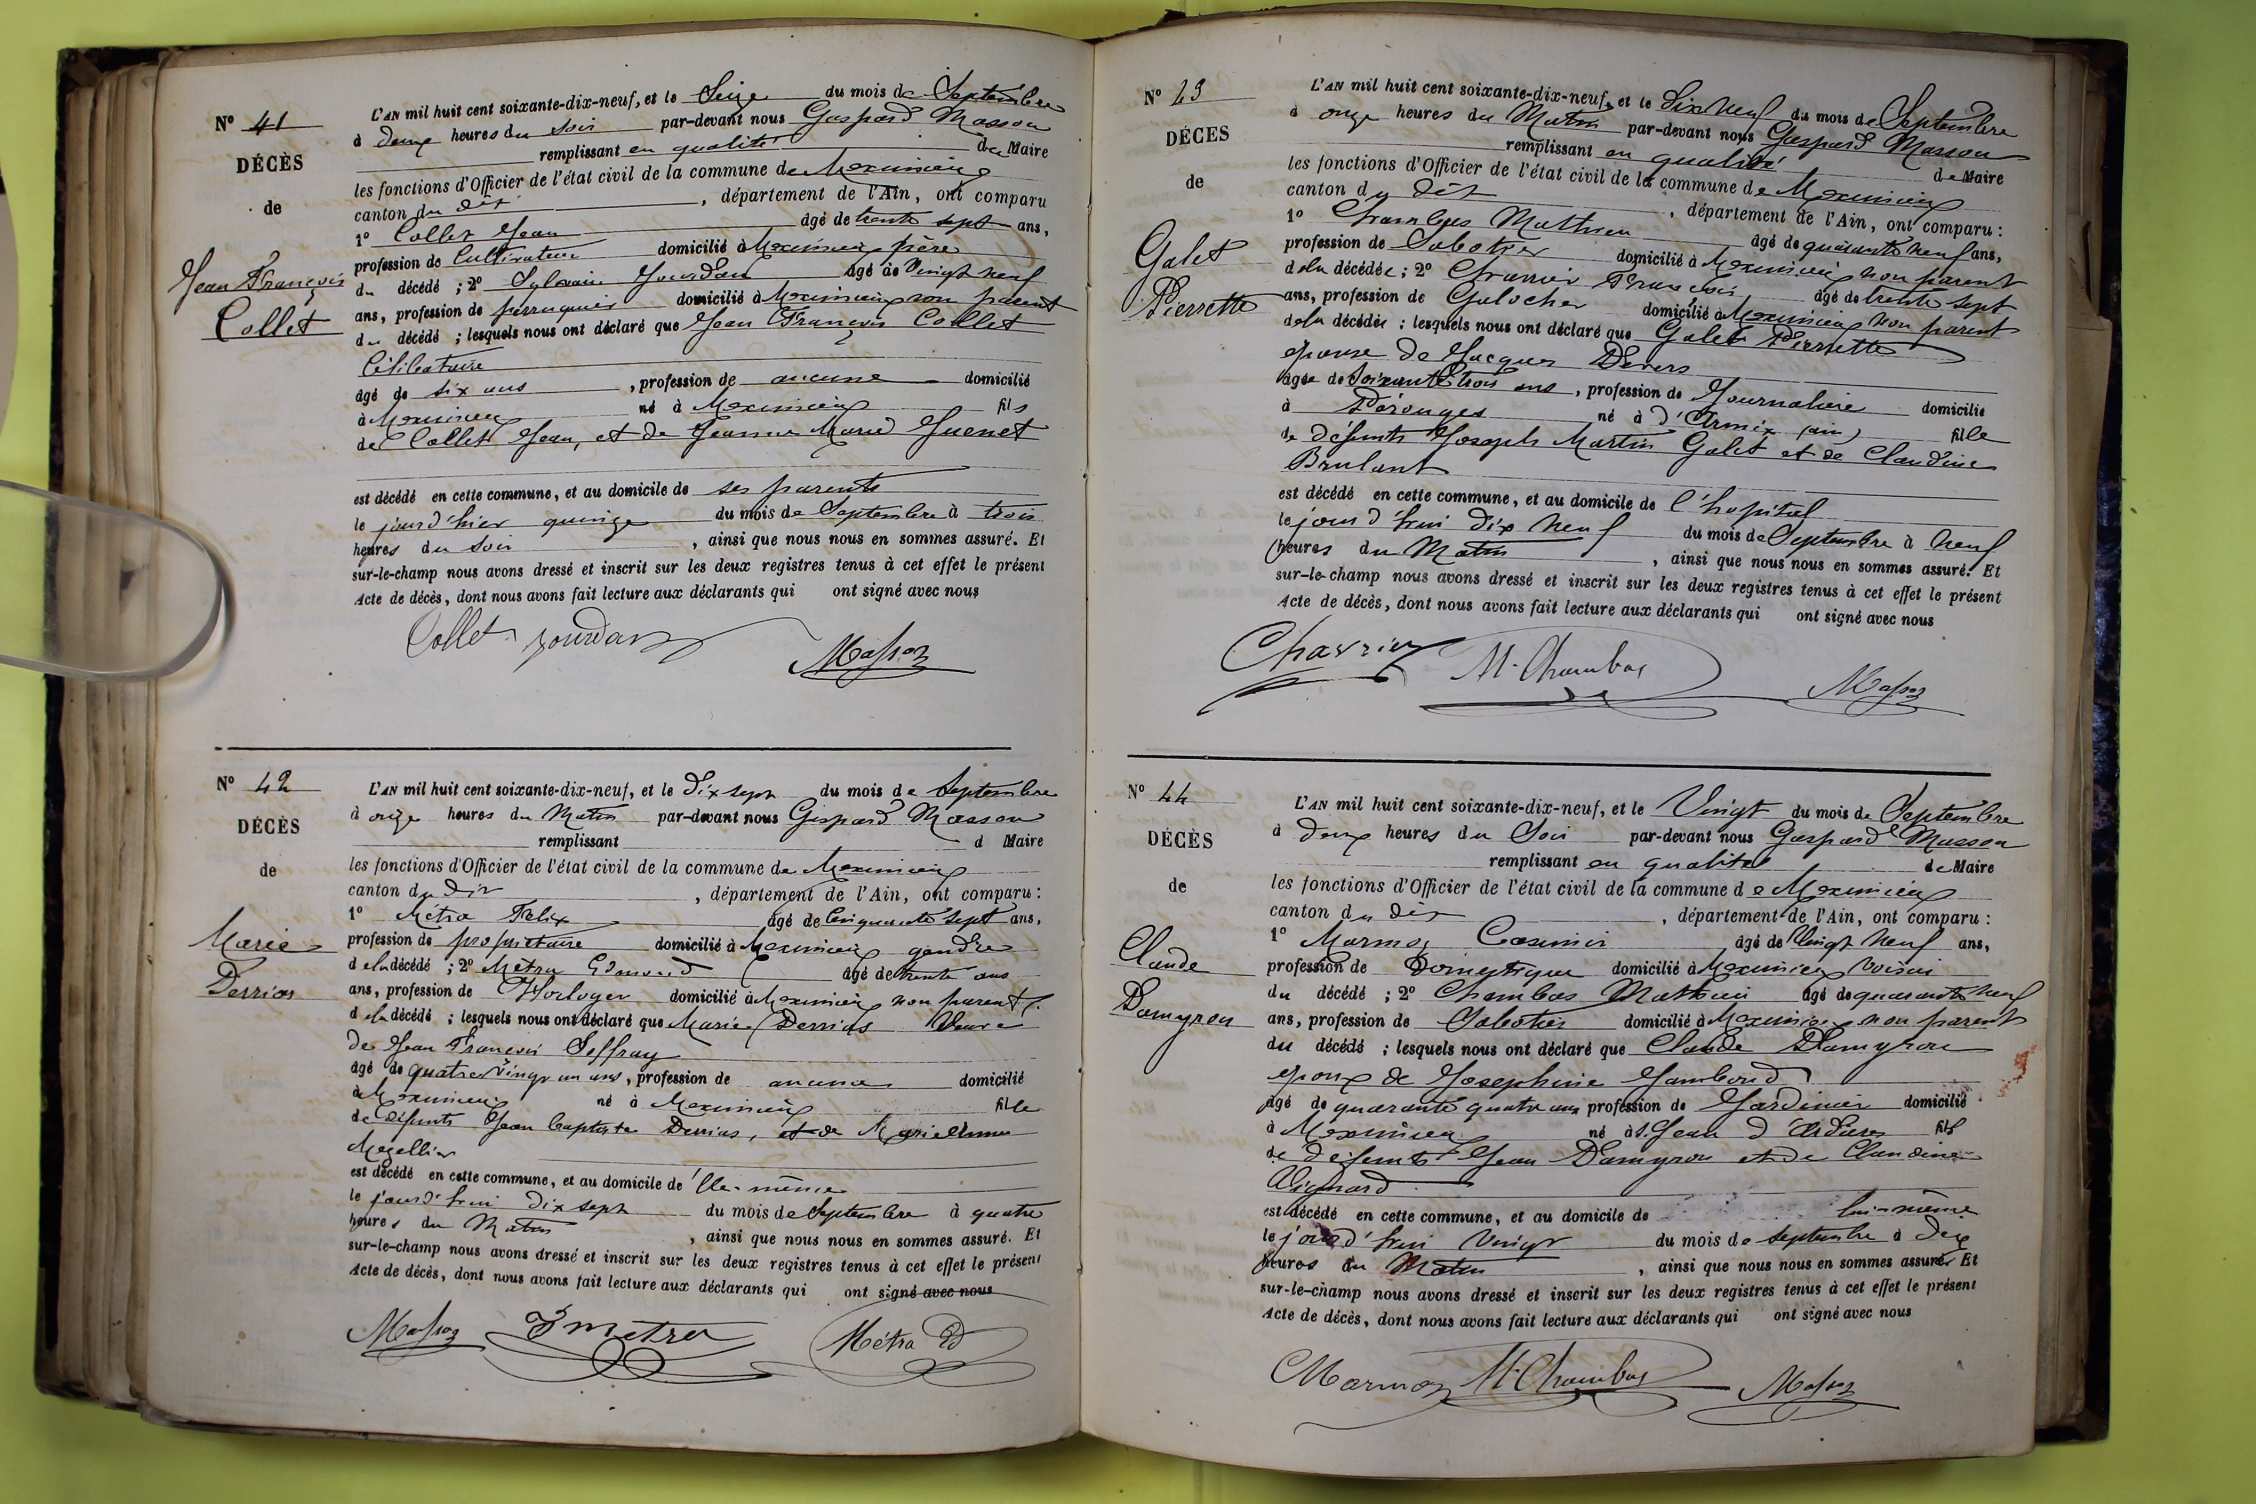 N° 41
DÉCÈS
de
Jean François
Collet
L'AN mil huit cent soixante-dix-neuf, et le Seize du mois de Septembre
à deux heures du soir par-devant nous Gaspard Masson
remplissant en qualité de Maire
les fonctions d'Officier de l'état civil de la commune de Meximieux
canton du dit, département de l'Ain, ont comparu
1° Collet Jean âgé de trente sept ans,
profession de Cultivateur domicilié à Meximieux père
du décédé ; 2° Sylvain Jourdan âgé de Vingt neuf
ans, profession de perruquier domicilié à Meximieux non parent
du décédé ; lesquels nous ont déclaré que Jean François Collet
Célibataire
âgé de six ans, profession de aucune domicilié
à Meximieux né à Meximieux fils
de Collet Jean, et de Jeanne Marie Guenet
est décédé en cette commune, et au domicile de ses parents
le jourd'hier quinze du mois de Septembre à trois
heures du soir, ainsi que nous nous en sommes assuré. Et
sur-le-champ nous avons dressé et inscrit sur les deux registres tenus à cet effet le présent
Acte de décès, dont nous avons fait lecture aux déclarants qui ont signé avec nous
Collet Jourdan Masson
N° 42
DÉCÈS
de
Marie
Derrias
L'AN mil huit cent soixante-dix-neuf, et le dix sept du mois de Septembre
à onze heures du Matin par-devant nous Gaspard Masson
remplissant d Maire
les fonctions d'Officier de l'état civil de la commune de Meximieux
canton du dit, département de l'Ain, ont comparu :
1° Métra Félix âgé de Cinquante sept ans,
profession de propriétaire domicilié à Meximieux gendre
de la décédé ; 2° Métra Edouard âgé de trente ans
ans, profession de Horloger domicilié à Meximieux non parent
de la décédé ; lesquels nous ont déclaré que Marie Derrias Veuve
de Jean François Jeffray
âgé de quatre Vingt un ans, profession de aucune domicilié
à Meximieux né à Meximieux fille
de défunts Jean baptiste Derrias, et de Marie
Mezellier
est décédé en cette commune, et au domicile de Elle-même
le jourd'hui dix sept du mois de Septembre à quatre
heures du Matin, ainsi que nous nous en sommes assuré. Et
sur-le-champ nous avons dressé et inscrit sur les deux registres tenus à cet effet le présent
Acte de décès, dont nous avons fait lecture aux déclarants qui ont signé avec nous
Masson F Métra Métra Ed
N° 43
DÉCES
de
Galet
Pierrette
L'AN mil huit cent soixante-dix-neuf, et le Dix Neuf du mois de Septembre
à onze heures du Matin par-devant nous Gaspard Masson
remplissant en qualité de Maire
les fonctions d'Officier de l'état civil de la commune de Meximieux
canton du dit, département de l'Ain, ont comparu :
1° Chambas Mathieu âgé de quarante neuf ans,
profession de Sabotier domicilié à Meximieux non parent
de la décédée ; 2° Charvin François âgé de trente sept
ans, profession de Galocher domicilié à Meximieux non parent
de la décédée ; lesquels nous ont déclaré que Galet Pierrette
épouse de Jacques Devers
âgée de Soixante trois ans, profession de Journalière domicilié
à Pérouges né à d'Armix (ain) fille
de défunts Joseph Martin Galet et de Claudine
Brulant
est décédé en cette commune, et au domicile de l'hopital
le jourd'hui dix neuf du mois de Septembre à Neuf
heures du Matin, ainsi que nous nous en sommes assuré. Et
sur-le-champ nous avons dressé et inscrit sur les deux registres tenus à cet effet le présent
Acte de décès, dont nous avons fait lecture aux déclarants qui ont signé avec nous
M. Chambas Masson
N° 44
DÉCÈS
de
Claude
Damyron
L'AN mil huit cent soixante-dix-neuf, et le Vingt du mois de Septembre
à deux heures du Soir par-devant nous Gaspard Masson
remplissant en qualité de Maire
les fonctions d'Officier de l'état civil de la commune de Meximieux
canton du dit, département de l'Ain, ont comparu :
1° Marmoz Casimir âgé de Vingt Neuf ans,
profession de Domestique domicilié à Meximieux Voisin
du décédé ; 2° Chambas Mathieu âgé de quarante neuf
ans, profession de Sabotier domicilié à Meximieux non parent
du décédé ; lesquels nous ont déclaré que Claude Damyron
époux de Josephine Gambond
âgé de quarante quatre ans profession de Jardinier domicilié
à Meximieux né à St. Jean d'Ardières fils
de défunts Jean Damyron et de Claudine
Vignard
est décédé en cette commune, et au domicile de lui-même
le jourd'hui Vingt du mois de septembre à dix
heures du Matin, ainsi que nous nous en sommes assuré. Et
sur-le-champ nous avons dressé et inscrit sur les deux registres tenus à cet effet le présent
Acte de décès, dont nous avons fait lecture aux déclarants qui ont signé avec nous
Marmoz M. Chambas Masson